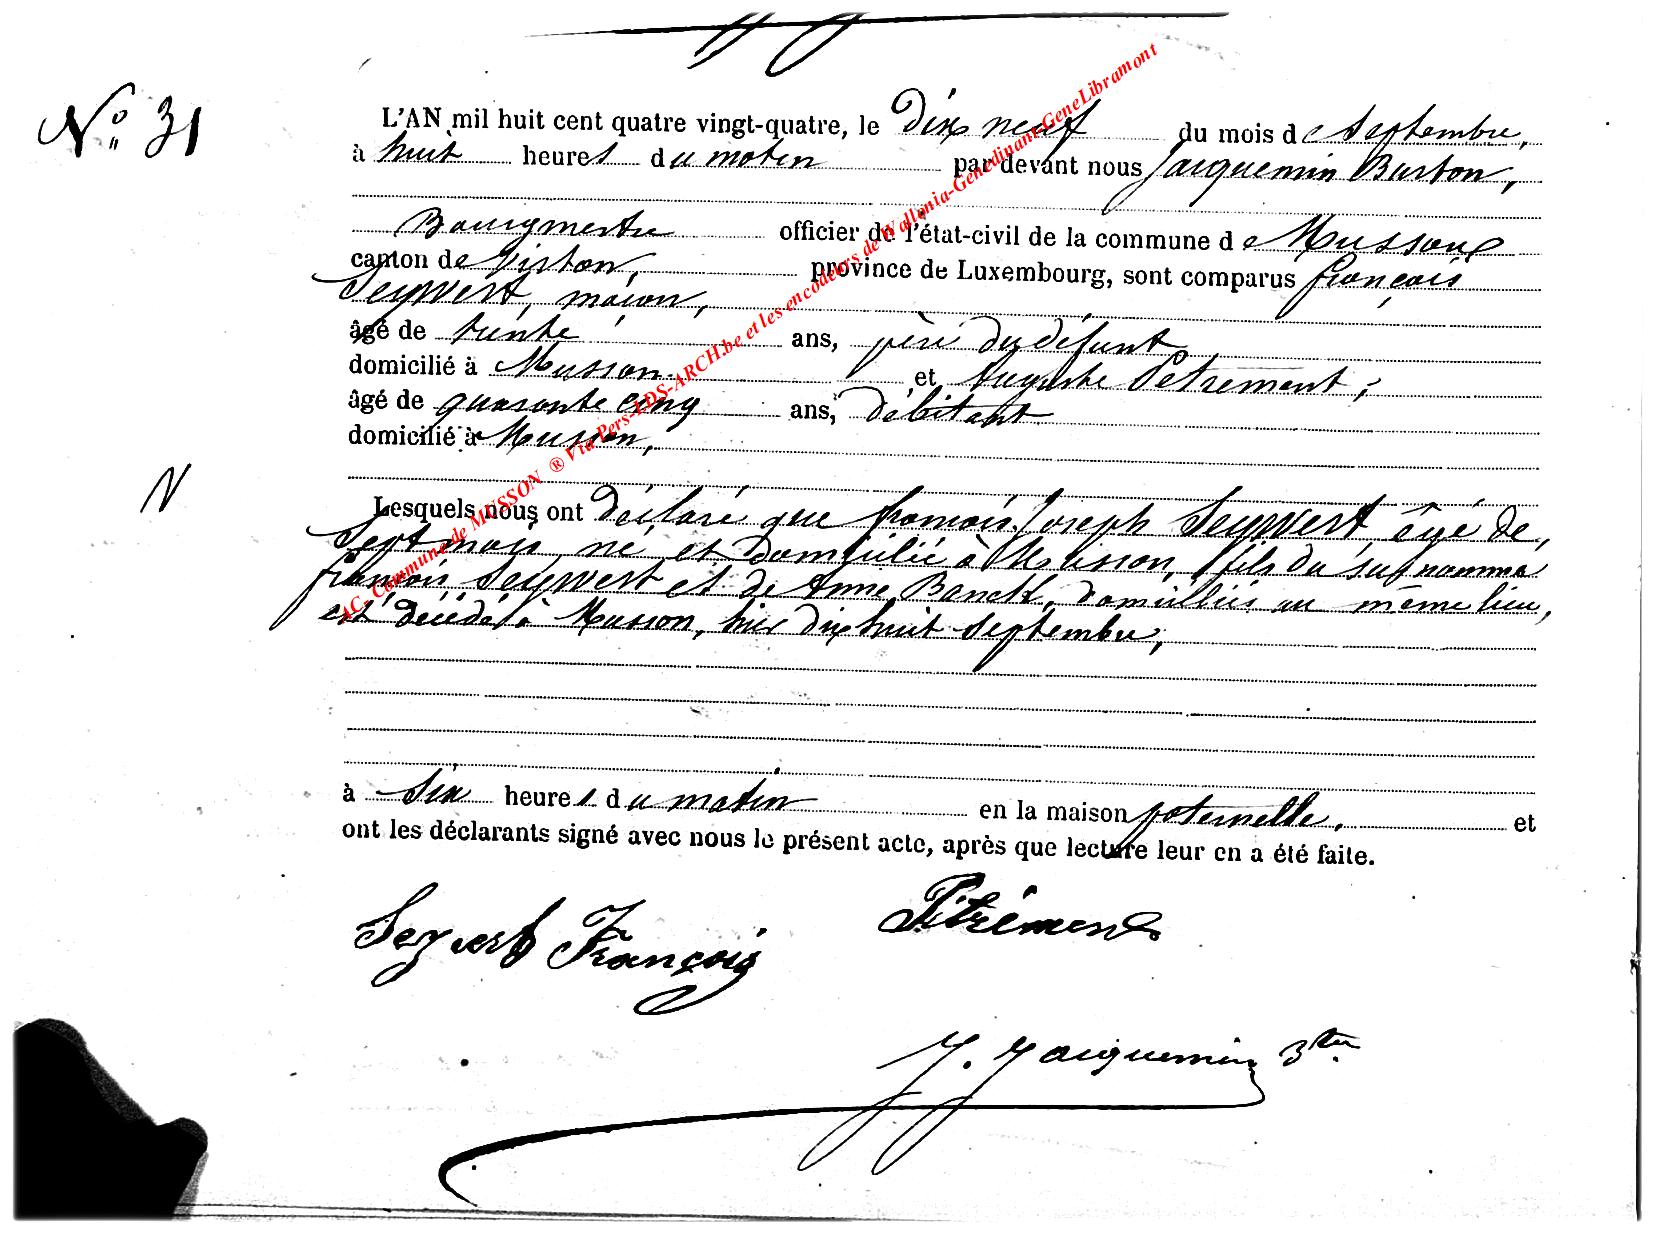 N° 31
L'AN mil huit cent quatre vingt-quatre, le dix neuf du mois de Septembre,
à huit heures du matin par devant nous Jacquemin Burton,
Bourgmestre officier de l'état-civil de la commune de Musson
canton de Virton, province de Luxembourg, sont comparus françois
Seywert, maçon,
âgé de trente ans, père du défunt
domicilié à Musson et Auguste Petrement,
âgé de quarante cinq ans, débitant
domicilié à Musson,
N
Lesquels nous ont déclaré que françois Joseph Seywert, âgé de
Sept mois, né et domicilié à Musson, fils du susnommé
françois Seywert et de Anne Banck, domiciliés au même lieu,
est décédé à Musson, hier dix huit Septembre,
à six heures du matin en la maison paternelle, et
ont les déclarants signé avec nous le présent acte, après que lecture leur en a été faite.
Seywert François Pétrément
J. Jacquemin Btn
AC. Commune de MUSSON ® Via Pers-LDS-ARCH.be et les encodeurs de Wallonia-Genedinant-GeneLibramont